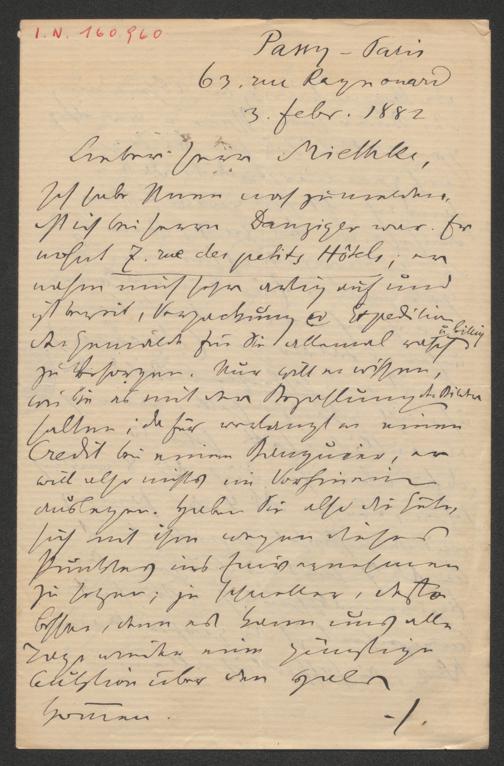 I.N. 160.960
Passy – Paris
63. rue Raynouard
3. febr. 1882
Lieber Herr Miethke,
Ich habe Ihnen noch zu melden,
daß ich bei Herrn Danziger war. Er
wohnt 7. rue des petits Hôtels, er
nahm mich sehr artig auf und
ist bereit, Verpackung & Expedition
der Gemälde für Sie allemal rasch
u. billig
zu besorgen. Nur will er wissen,
wie Sie es mit der Bezahlung der Bilder
halten; dafür verlangt er einen
Credit bei einem Banquier, er
will also nichts im Vorhinein
auslegen. Haben Sie also die Güte,
sich mit ihm wegen dieses
Punktes ins Einvernehmen
zu setzen; je schneller, desto
besser, denn es kann uns alle
Tage wieder eine günstige
Auktion über den Hals
kommen. -/.